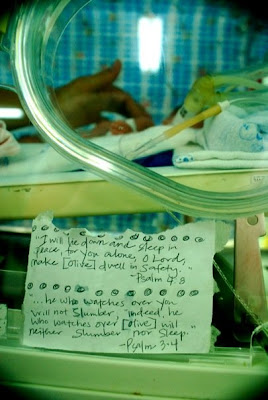 "I will lie down and sleep in
peace, for you alone, O Lord,
make [Olive] dwell in safety."
-Psalm 4:8
"...he who watches over you
will not slumber, indeed, he
who watches over [Olive] will
neither slumber nor sleep."
-Psalm 3-4